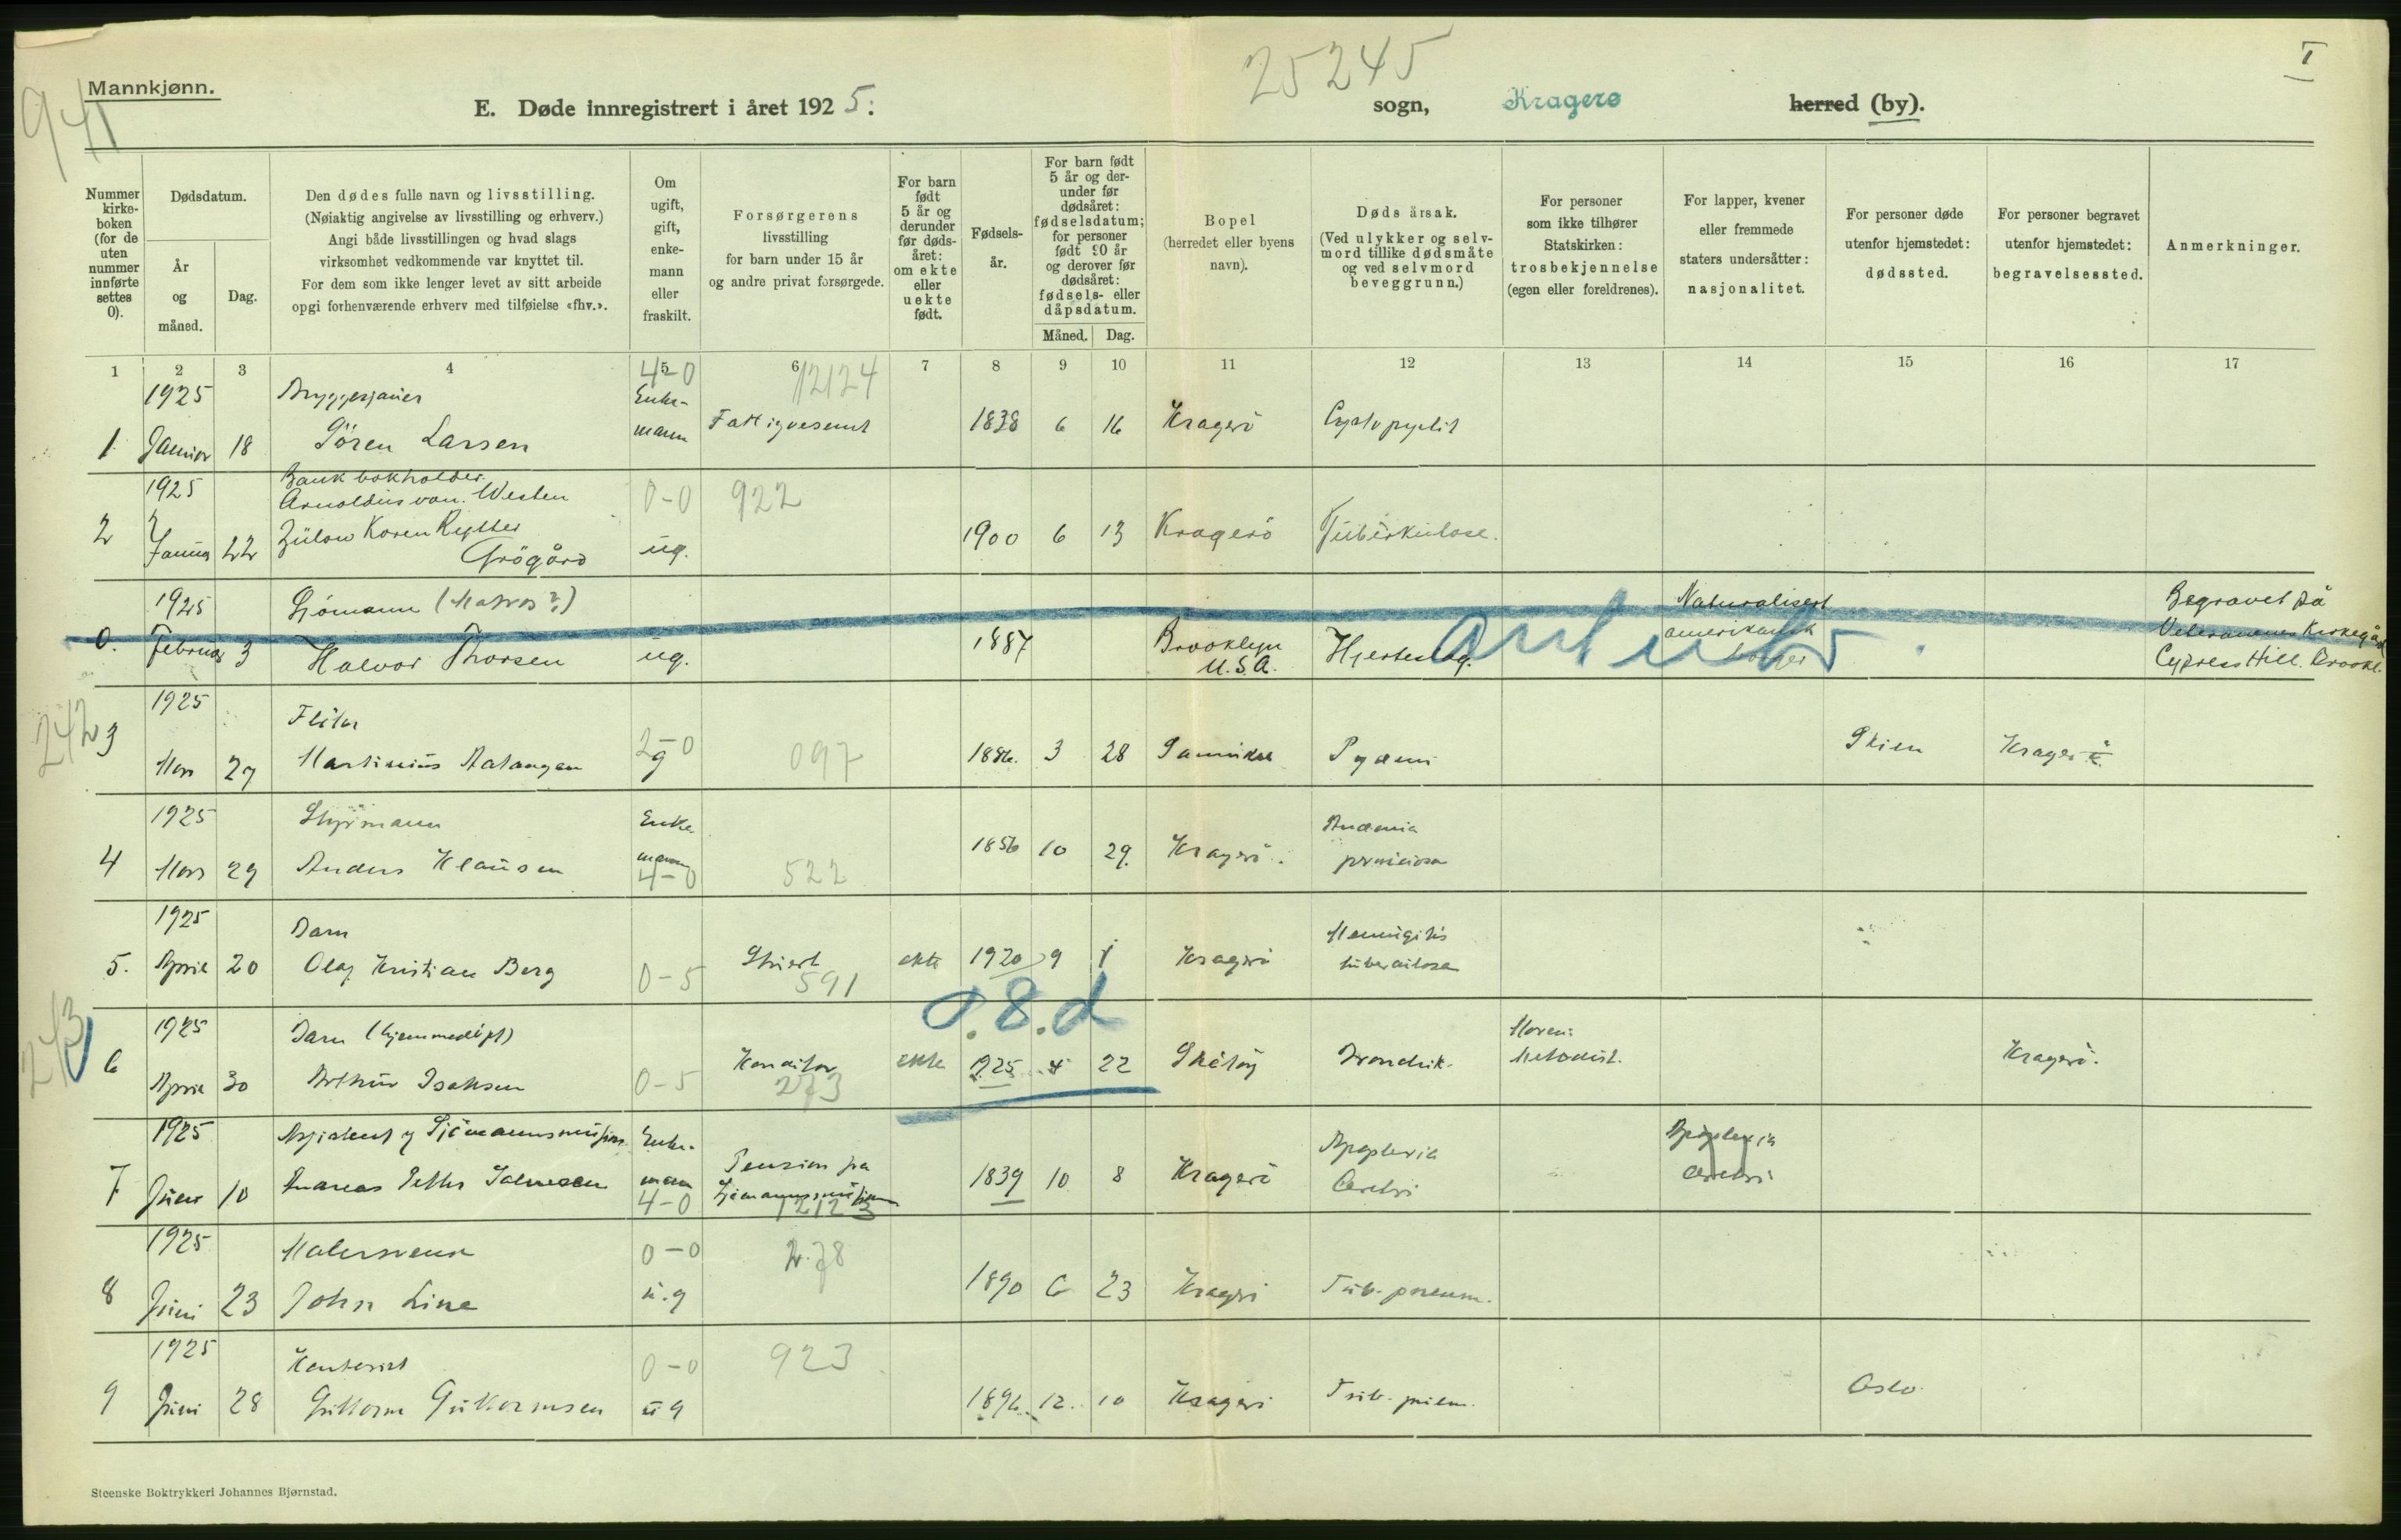 25245
I
Mannkjønn.
941
E. Døde innregistrert i året 1925.
sogn,
Kragerø
herred (by).
Nummer
kirke-
boken
(for de
uten
nummer
innførte
settes
0).
Dødsdatum.
År
og
måned.
Dag.
Den dødes fulle navn og livsstilling.
(Nøiaktig angivelse av livsstilling og erhverv.)
Angi både livsstillingen og hvad slags
virksomhet vedkommende var knyttet til.
For dem som ikke lenger levet av sitt arbeide
opgi forhenværende erhverv med tilføielse «fhv.».
Om
ugift,
gift,
enke-
mann
eller
fraskilt.
Forsørgerens
livsstilling
for barn under 15 år
og andre privat forsørgede.
For barn
født
5 år og
derunder
før døds-
året:
om ekte
eller
uekte
født.
Fødsels-
år.
For barn født
5 år og der-
under før
dødsåret:
fødselsdatum;
for personer
født 90 år
og derover før
dødsåret:
fødsels- eller
dåpsdatum.
Måned. Dag.
Bopel
(herredet eller byens
navn).
Døds årsak.
(Ved ulykker og selv-
mord tillike dødsmåte
og ved selvmord
beveggrunn.)
For personer
som ikke tilhører
Statskirken:
trosbekjennelse
(egen eller foreldrenes).
For lapper, kvener
eller fremmede
staters undersåtter:
nasjonalitet.
For personer døde
utenfor hjemstedet:
dødssted.
For personer begravet
utenfor hjemstedet:
begravelsessted.
Anmerkninger.
1 2 3 4 5 6 7 8 9 10 11 12 13 14 15 16 17
1925 Bryggesjauer Enke- 4-0 12124
1. Januar 18 Sören Larsen mann Fattigvesenet 1838 6 16 Kragerö Cystopyelit
1925 Bankbokholder
Arnoldus von Westen 0-0 922
2 Januar 22 Zülow Koren Rytter
Grögård ug. 1900 6 13 Kragerö Tuberkulose.
1925 Sjömann (Matros?) Naturalisert Begravet på
0. Februar 3 Halvor Thorsen ug. 1887 Brooklyn U.S.A. Hjerteslag. amerikansk borger Veteranenes Kirkegård
Cypress Hill. Brookl.
242
1925 Fhv. 
3 Mars 27 Martinius g 2-0 097 1886. 3 28 Sannidal Pyæmi Skien Kragerö
1925 Styrmann Enke Anæmia
4 Mars 29 Anders Klausen mann 4-0 522 1856 10 29. Kragerö. perniciosa
1925 Barn Meningitis
5. April 20 Olaf Kristian Berg 0-5 591 ekte 1920 9 1 Kragerö tuberculosa
0.8.d
243
1925 Barn (hjemmedöpt) Moren:
6 April 30 Arthur Isaksen 0-5 Konditor 273 ekte 1925 4 22 Skåtöy Bronchit. Metodist. Kragerö.
1925 Assistent v Sjömannsmisjon Enke- Pension fra Apoplexia Apoplexia
7 Juni 10 Andreas Petter mann 4-0 Sjömannsmisjonen 12123 1839 10 8 Kragerö Cerebri cerebri
1925 Malersvenn 0-0 278
8 Juni 23 John Line u.g 1890 6 23 Kragerö Tub. pneum.
1925 Kontorist 0-0 923
9 Juni 28 Guttorm Guttormsen ug 1896. 12. 10 Kragerö Tub. pulm. Oslo.
Steenske Boktrykkeri Johannes Bjørnstad.